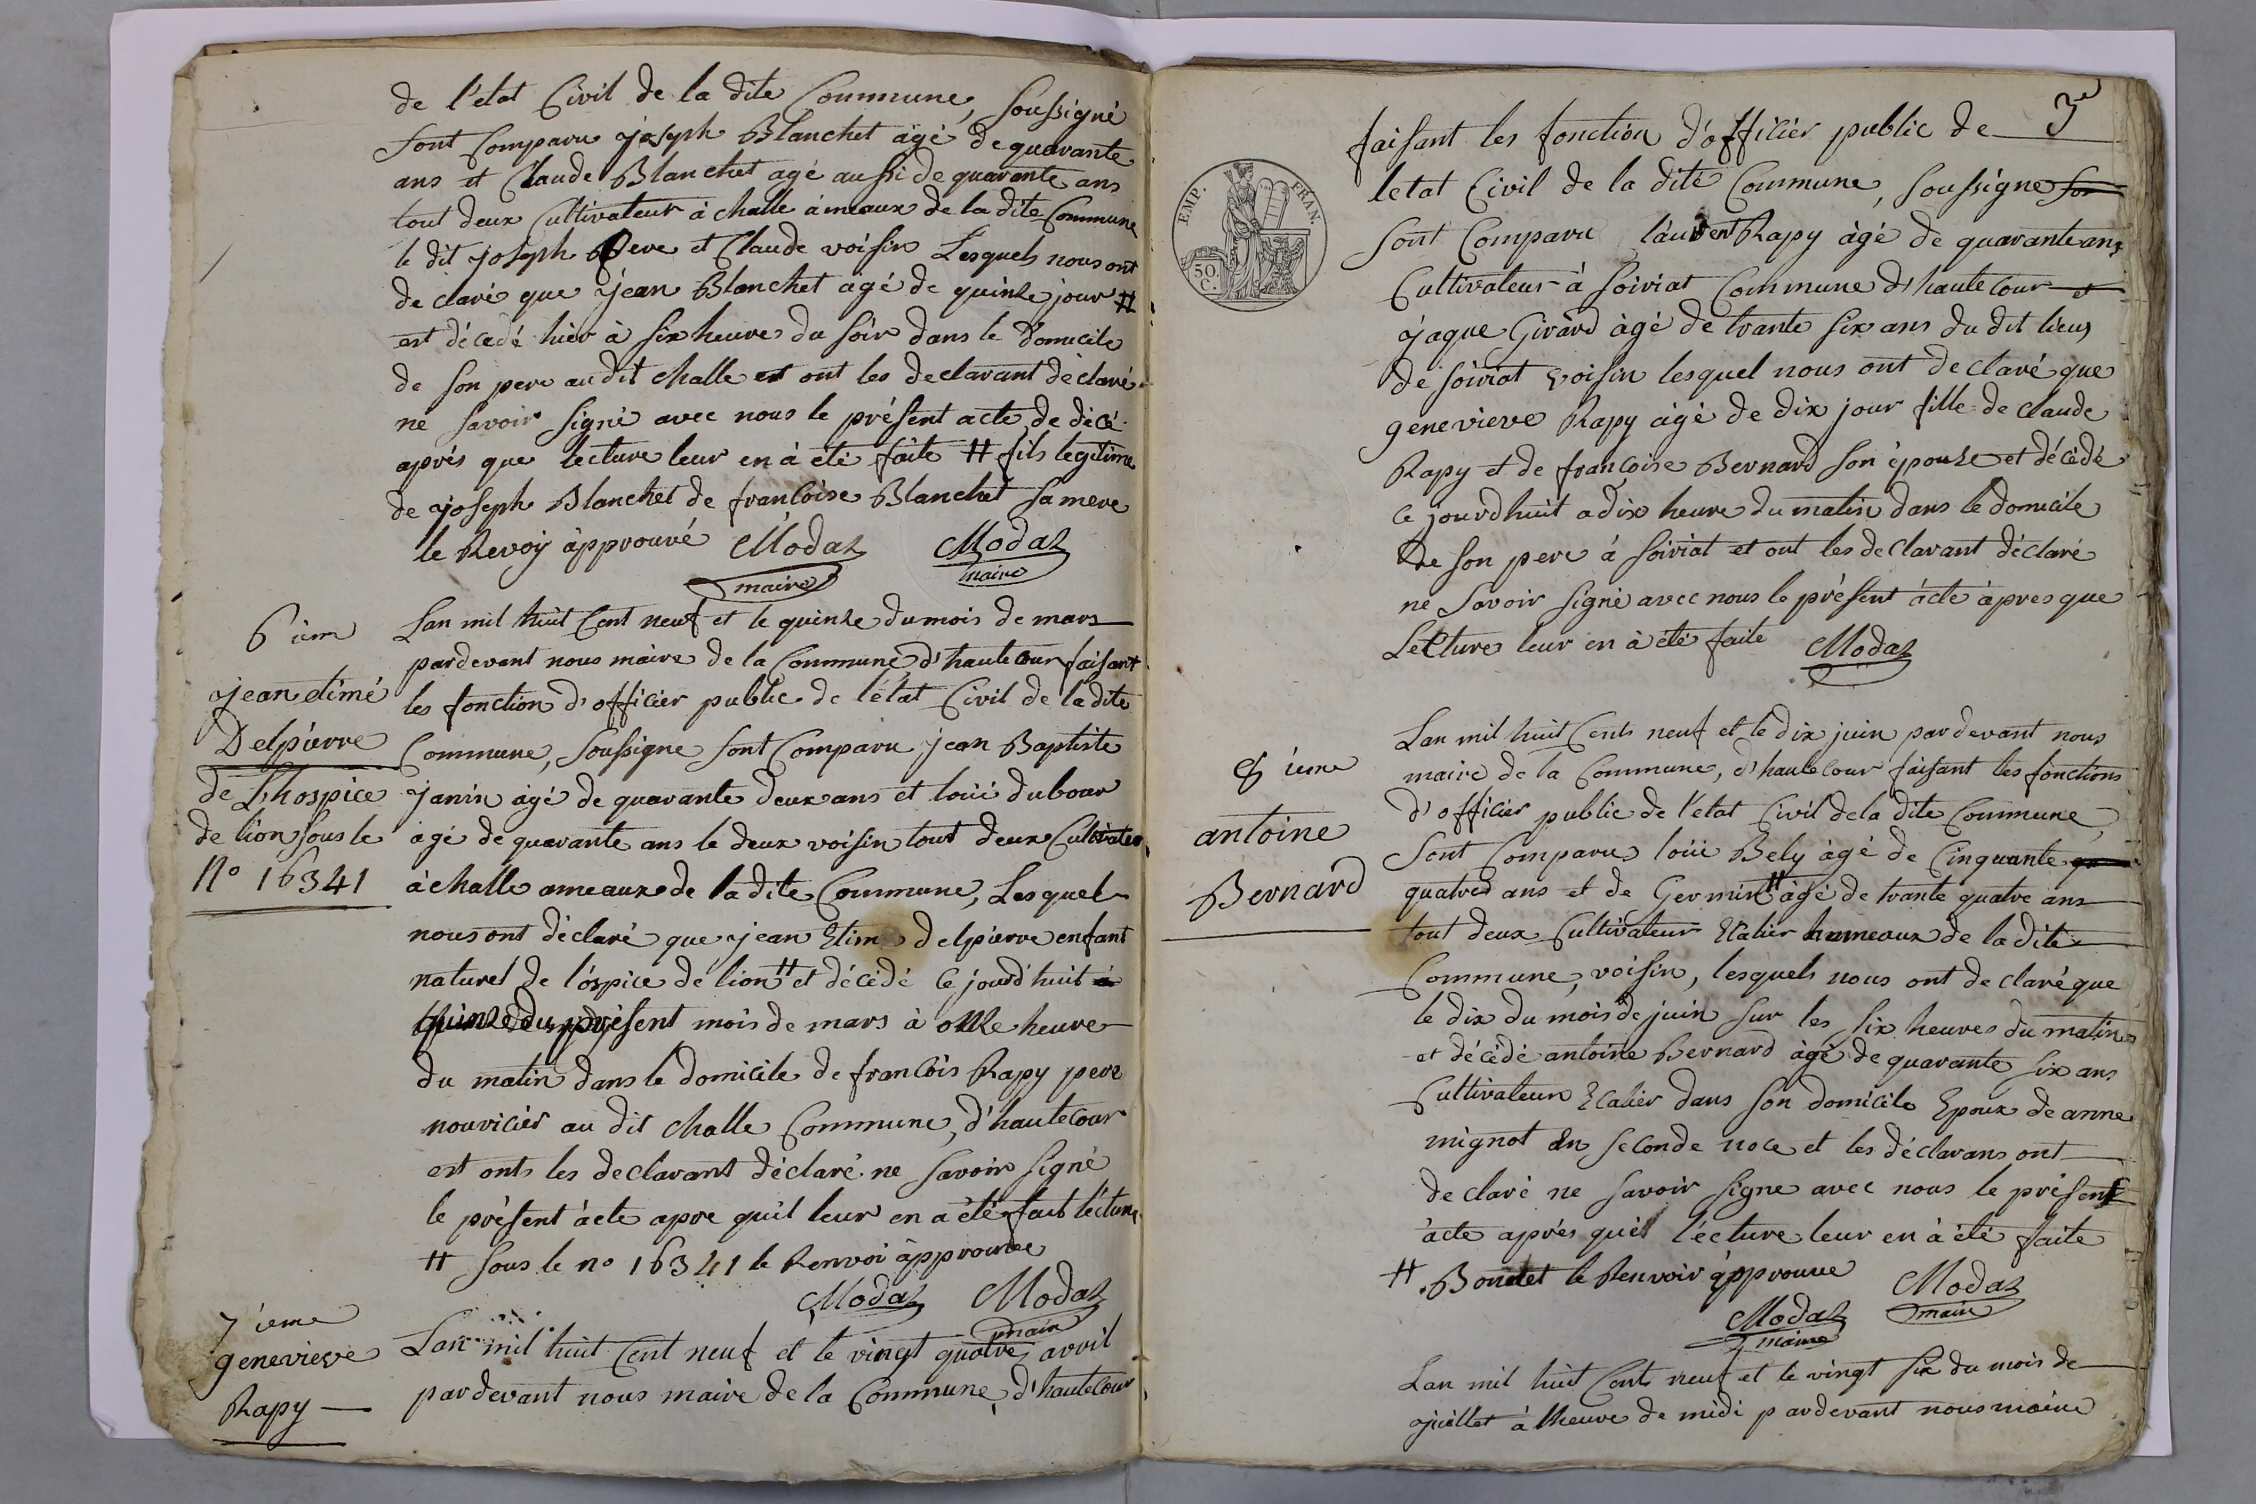 de l'état Civil de la dite Commune, soussigné
sont Comparu joseph Blanchet âgé de quarante
ans et Claude Blanchet agé aussi de quarante ans
tout deux Cultivateur à challe ameaux de la dite Commune
le dit joseph Pere et Claude voisin Lesquels nous ont
de claré que jean Blanchet agé de quinze jour #
est décedé hier à six heure du soir dans le domicile
de son pere au dit challe et ont les declarant déclaré
ne savoir signé avec nous le présent acte de décé
aprés que lecture leur en à été faite # fils legitime
de joseph Blanchet de francoise Blanchet sa mere
le Revoy àpprouvé Modaz Modaz
maire maire
6 iem
jean etimé
Delpierre
de L'hospice
de lion sous le
No 16341
Lan mil huit Cent neuf et le quinze du mois de mars
pardevant nous maire de la Commune d'hautecour faisant
les fonction d'officier public de l'état Civil de la dite
Commune, soussigne sont Comparu jean Baptiste
janin âgé de quarante deux ans et loüi dubour
âgé de quarante ans le deux voisin tout deux Cultivateur
à challe ameaux de la dite Commune, Lesquel
nous ont déclaré que jean Etimé delpierre enfant
naturel de l'ospice de lion # et décédé Ce jourd'huit à
quinze du présent mois de mars à onze heure
du matin dans le domicile de francois Rapy pere
nouricier au dit challe Commune, d'hautecour
et onts les declarant déclaré ne savoir signé
le présent àcte apre quil leur en a été fait lécture
# sous le no 16341 le Renvoi àpprouvee
Modaz Modaz
maire
7 ieme
genevieve
Rapy
Lan mil huit Cent neuf et le vingt quatre avril
pardevant nous maire de la Commune, d'hautecour
3e
EMP. FRAN.
50.
C.
faisant les fonction d'officier public de
letat Civil de la dite Commune, soussigne son
sont Comparu laurent Rapy àgé de quarante ans
Cultivateur à soiriat Commune d'hautecour et
jaque Girard àgé de trante six ans du dit lieux
de soiriat voisin lesquel nous ont de claré que
genevieve Rapy àgé de dix jour fille de claude
Rapy et de francoise Bernard son épouze et décédé
ce jourdhuit a dix heure du matin dans le domicile
de son pere à soiriat et ont les declarant déclaré
ne savoir signé avec nous le présent àcte àpres que
Lecture leur en à été faite Modaz
8 ieme
antoine
Bernard
Lan mil huit Cents neuf et le dix juin pardevant nous
maire de la Commune, d'hautecour faisant les fonctions
d'officier public de l'etat Civil de la dite Commune,
sont Comparu loüi Bely àgé de Cinquante
quatred ans et de Germin # àgé de trante quatre ans
tout deux Cultivateur Etalier hameaux de la dite
Commune, voisin, lesquels nous ont de claré que
le dix du mois de juin sur les six heures du matin
et décédé antoine Bernard àgé de quarante six ans
Cultivateur Etalier dans son domicile Epoux de anne
mignot en seconde noce et les déclarans ont
de claré ne savoir signe avec nous le présent
àcte aprés quil lécture leur en à été faite
# Bondet le Renvoir àpprouve Modaz
Modaz maire
maire
Lan mil huit Cents neuf et le vingt six du mois de
juillet à lheure de midi pardevant nous maire